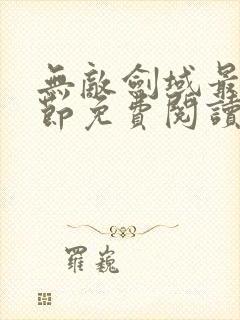 無敵劍域最
節免費閱讀
羅巍